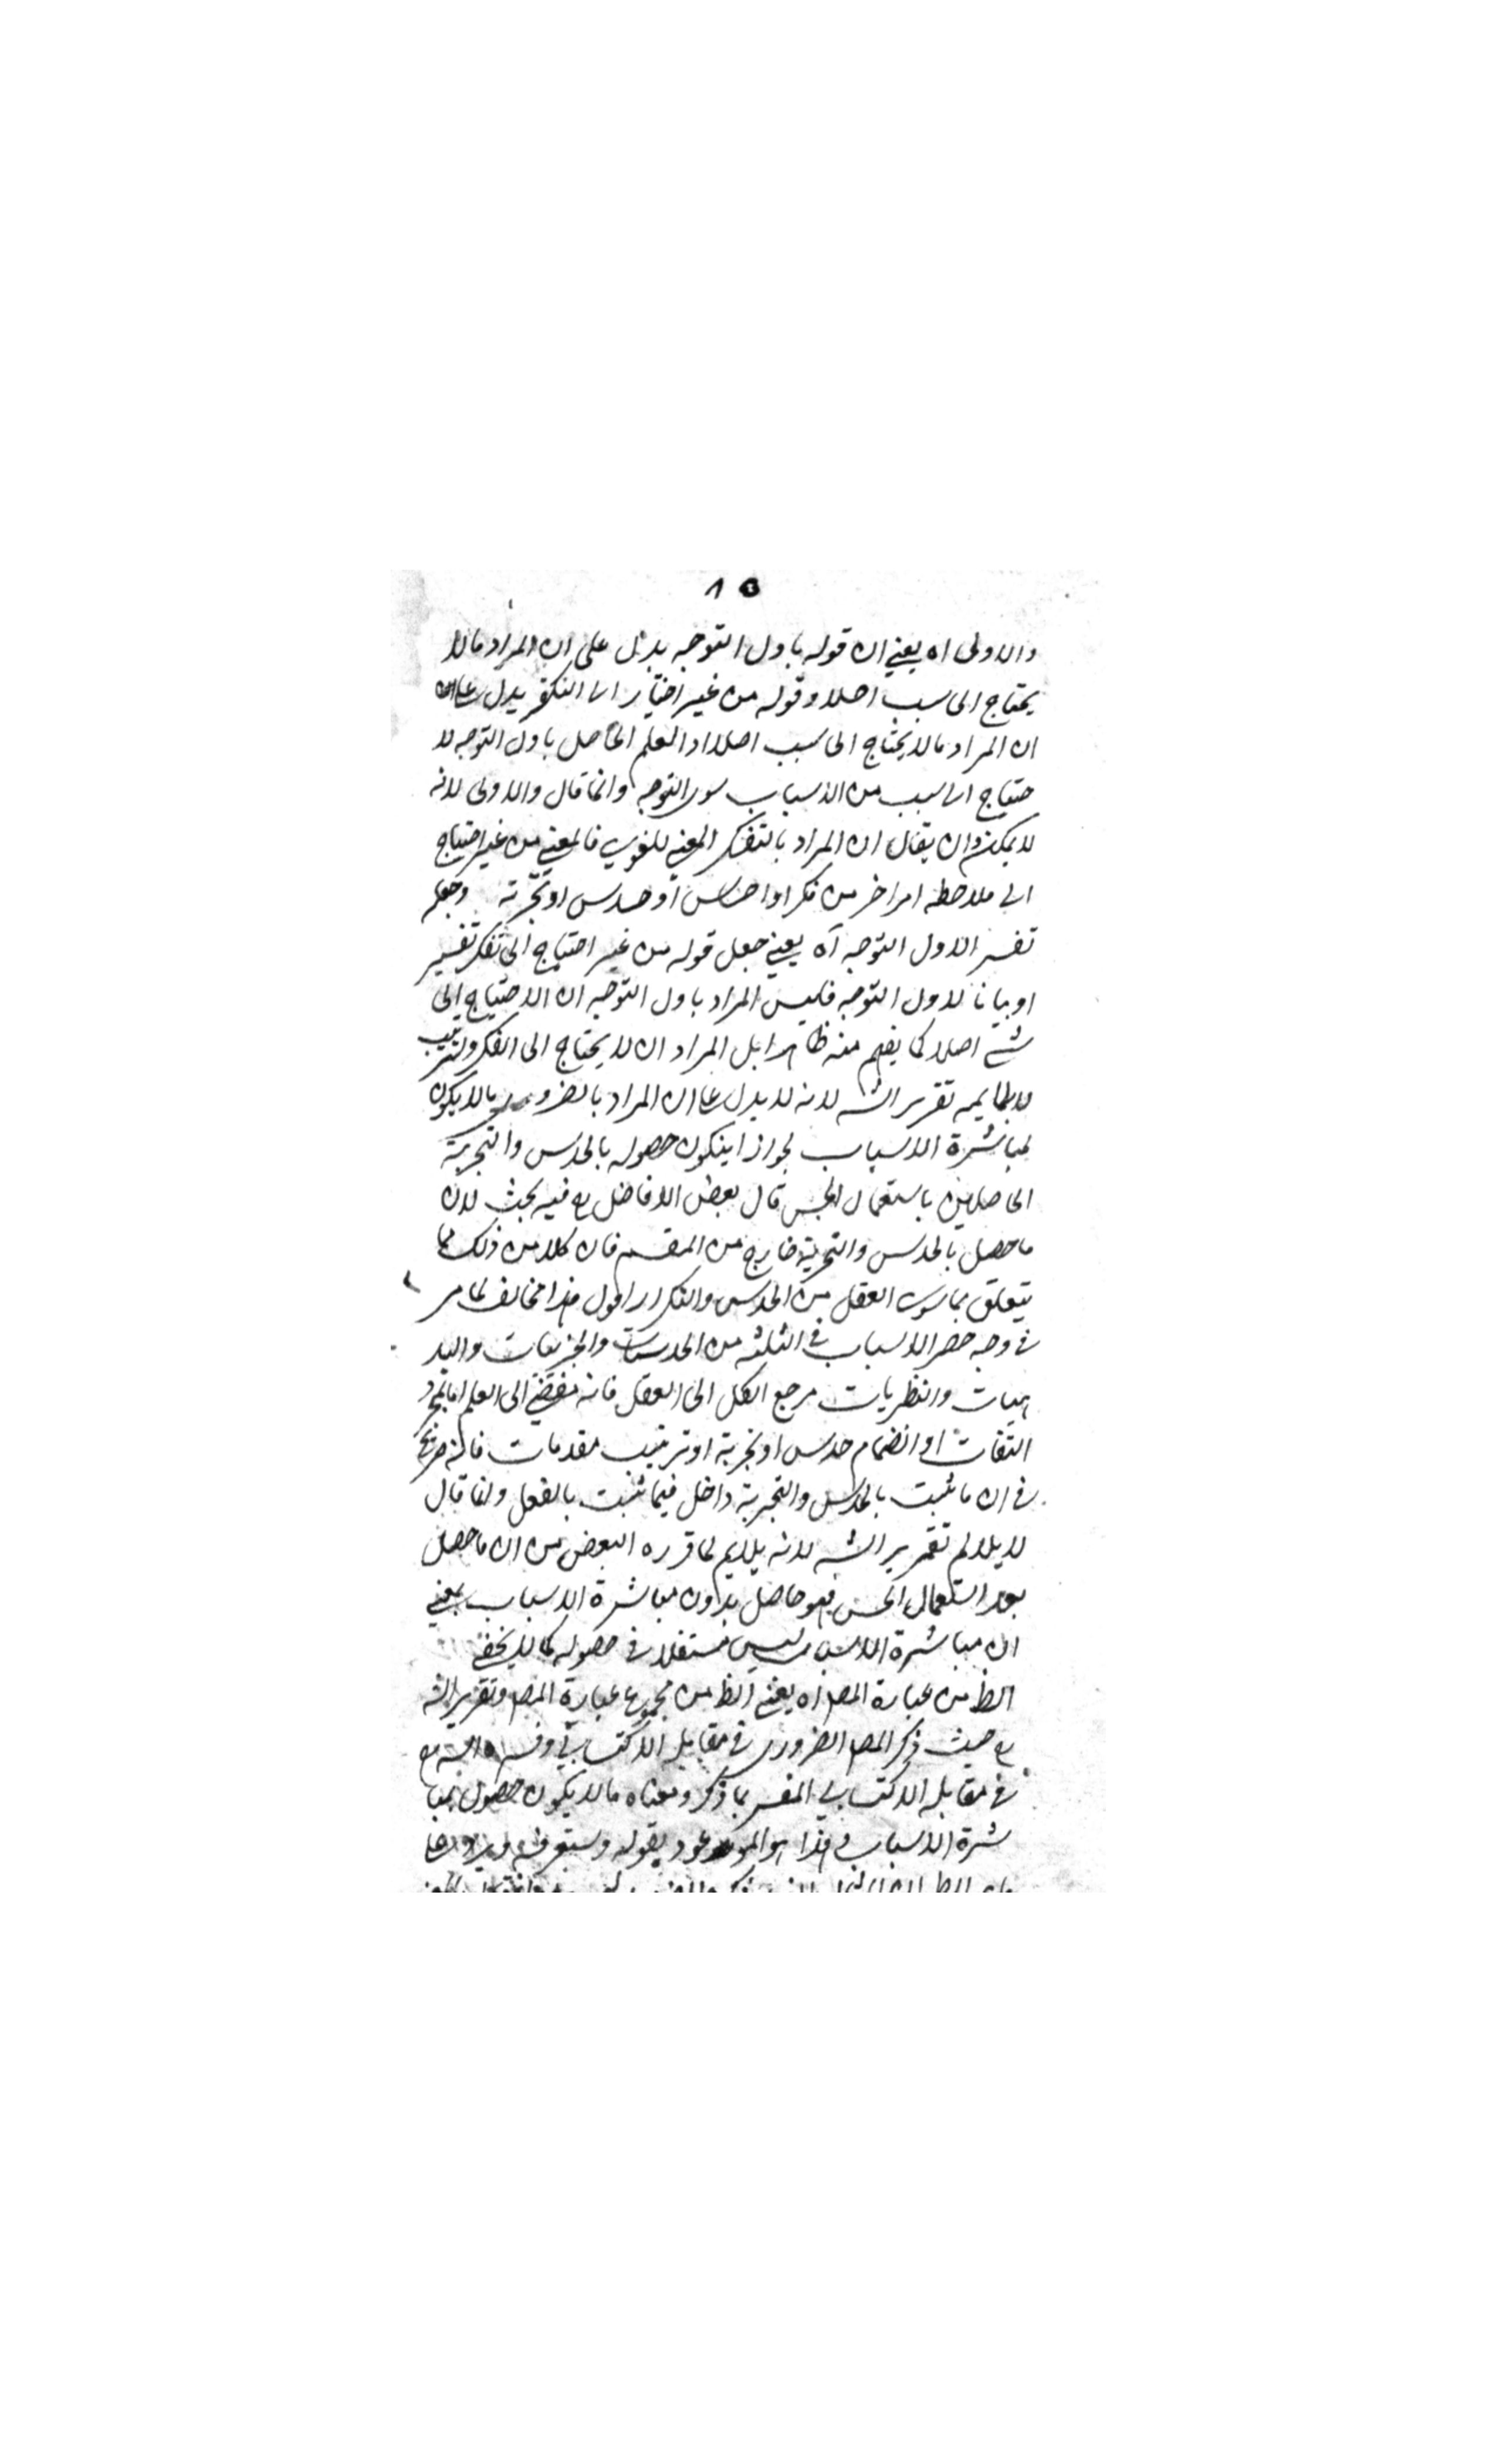 ١٥
والاولى اه يعني ان قوله باول التوجه يدل على ان المراد مالا
يحتاج الى سبب اصلا وقوله من غير احتياج الى التفكر يدل على
ان المراد مالا يحتاج الى سبب اصلا اذ العلم الحاصل باول التوجه لا
حتياج الى سبب من الاسباب سوى التوجه وانما قال والاولى لانه
لا يمكن وان يقال ان المراد بالتفكر المعنى اللغوي فالمعنى من غير احتياج
الى ملاحظه امر اخر من فكر او احساس او حدس او تجربة وجعله
تفسير الاول التوجه آه يعني جعل قوله من غير احتياج الى تفكر تفسير
او بيانا لاول التوجه فليس المراد باول التوجه ان الاحتياج الى
شئ اصلا كما يفهم منه ظاهرا بل المراد ان لا يحتاج الى الفكر وترتيب
لا يلايمه تقرير الشه لانه لا يدل على ان المراد بالضروري مالا يكون
لمباشرة الاسباب لجواز ان يكون حصوله بالحدس والتجربة
الحاصلين باستعمال الحس قال بعض الافاضل فيه بحث لان
ما حصل بالحدس والتجربة خارج من المقسم فان كلا من ذلك مما
يتعلق بما سوى العقل من الحدس والتكرار اقول هذا مخالف لما مر
في وجه حصر الاسباب في الثلثه من الحدسيات والتجربيات والبد
يهيات والنظريات مرجع الكل الى العقل فانه مفضي الى العلم اما بمجرد
التفات او انضمام حدس او تجربة او ترتيب مقدمات فانه صريح
في ان ما ثبت بالحدس والتجربة داخل فيما ثبت بالعقل وانما قال
لا يلالم تقرير الشه لانه يلايم لما قرره البعض من ان ما حصل
بعد استعمال الحس فهو حاصل بدون مباشرة الاسباب بمعنى
ان مباشرة الاسباب ليس مستقلا في حصوله كما لا يخفى
الظ من عبارة المص اه يعني الظ من مجموع عبارة المص وتقرير الشه
حيث ذكر المص الضروري في مقابله الاكتسابي وفسره الشه
في مقابله الاكتسابي المفسر بما ذكر ومعناه مالا يكون حصوله بمبا
شرة الاسباب وهذا هو الموعود بقوله وستعرفه